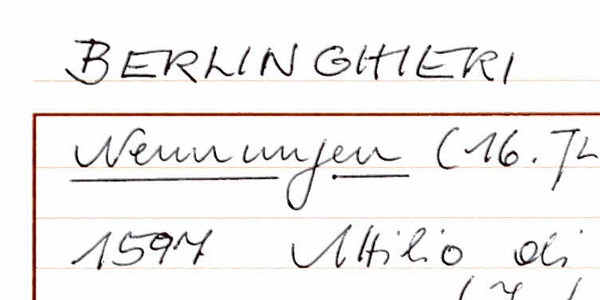 BERLINGHIERI
Nennungen (16. Jh
1597 Attilio di